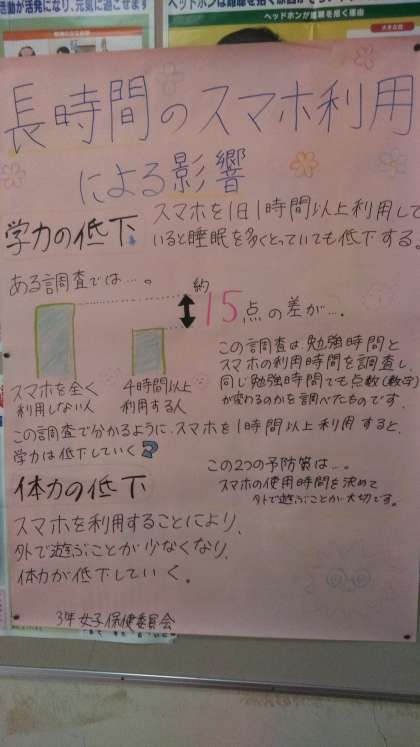 活動が活発になり、元気に過ごせます
ヘッドホンが難聴を招く理由
長時間のスマホ利用
による影響
学力の低下
スマホを1日1時間以上利用して
いると睡眠を多くとっていても低下する。
ある調査では…。
約
15点の差が…。
スマホを全く
利用しない人
4時間以上
利用する人
この調査は勉強時間と
スマホの利用時間を調査し、
同じ勉強時間でも点数(数学)
が変わるのかを調べたものです。
この調査で分かるように、スマホを1時間以上利用すると、
学力は低下していく
体力の低下
この2つの予防策は…。
スマホの使用時間を決めて
外で遊ぶことが大切です。
スマホを利用することにより、
外で遊ぶことが少なくなり、
体力が低下していく。
3年女子保健委員会